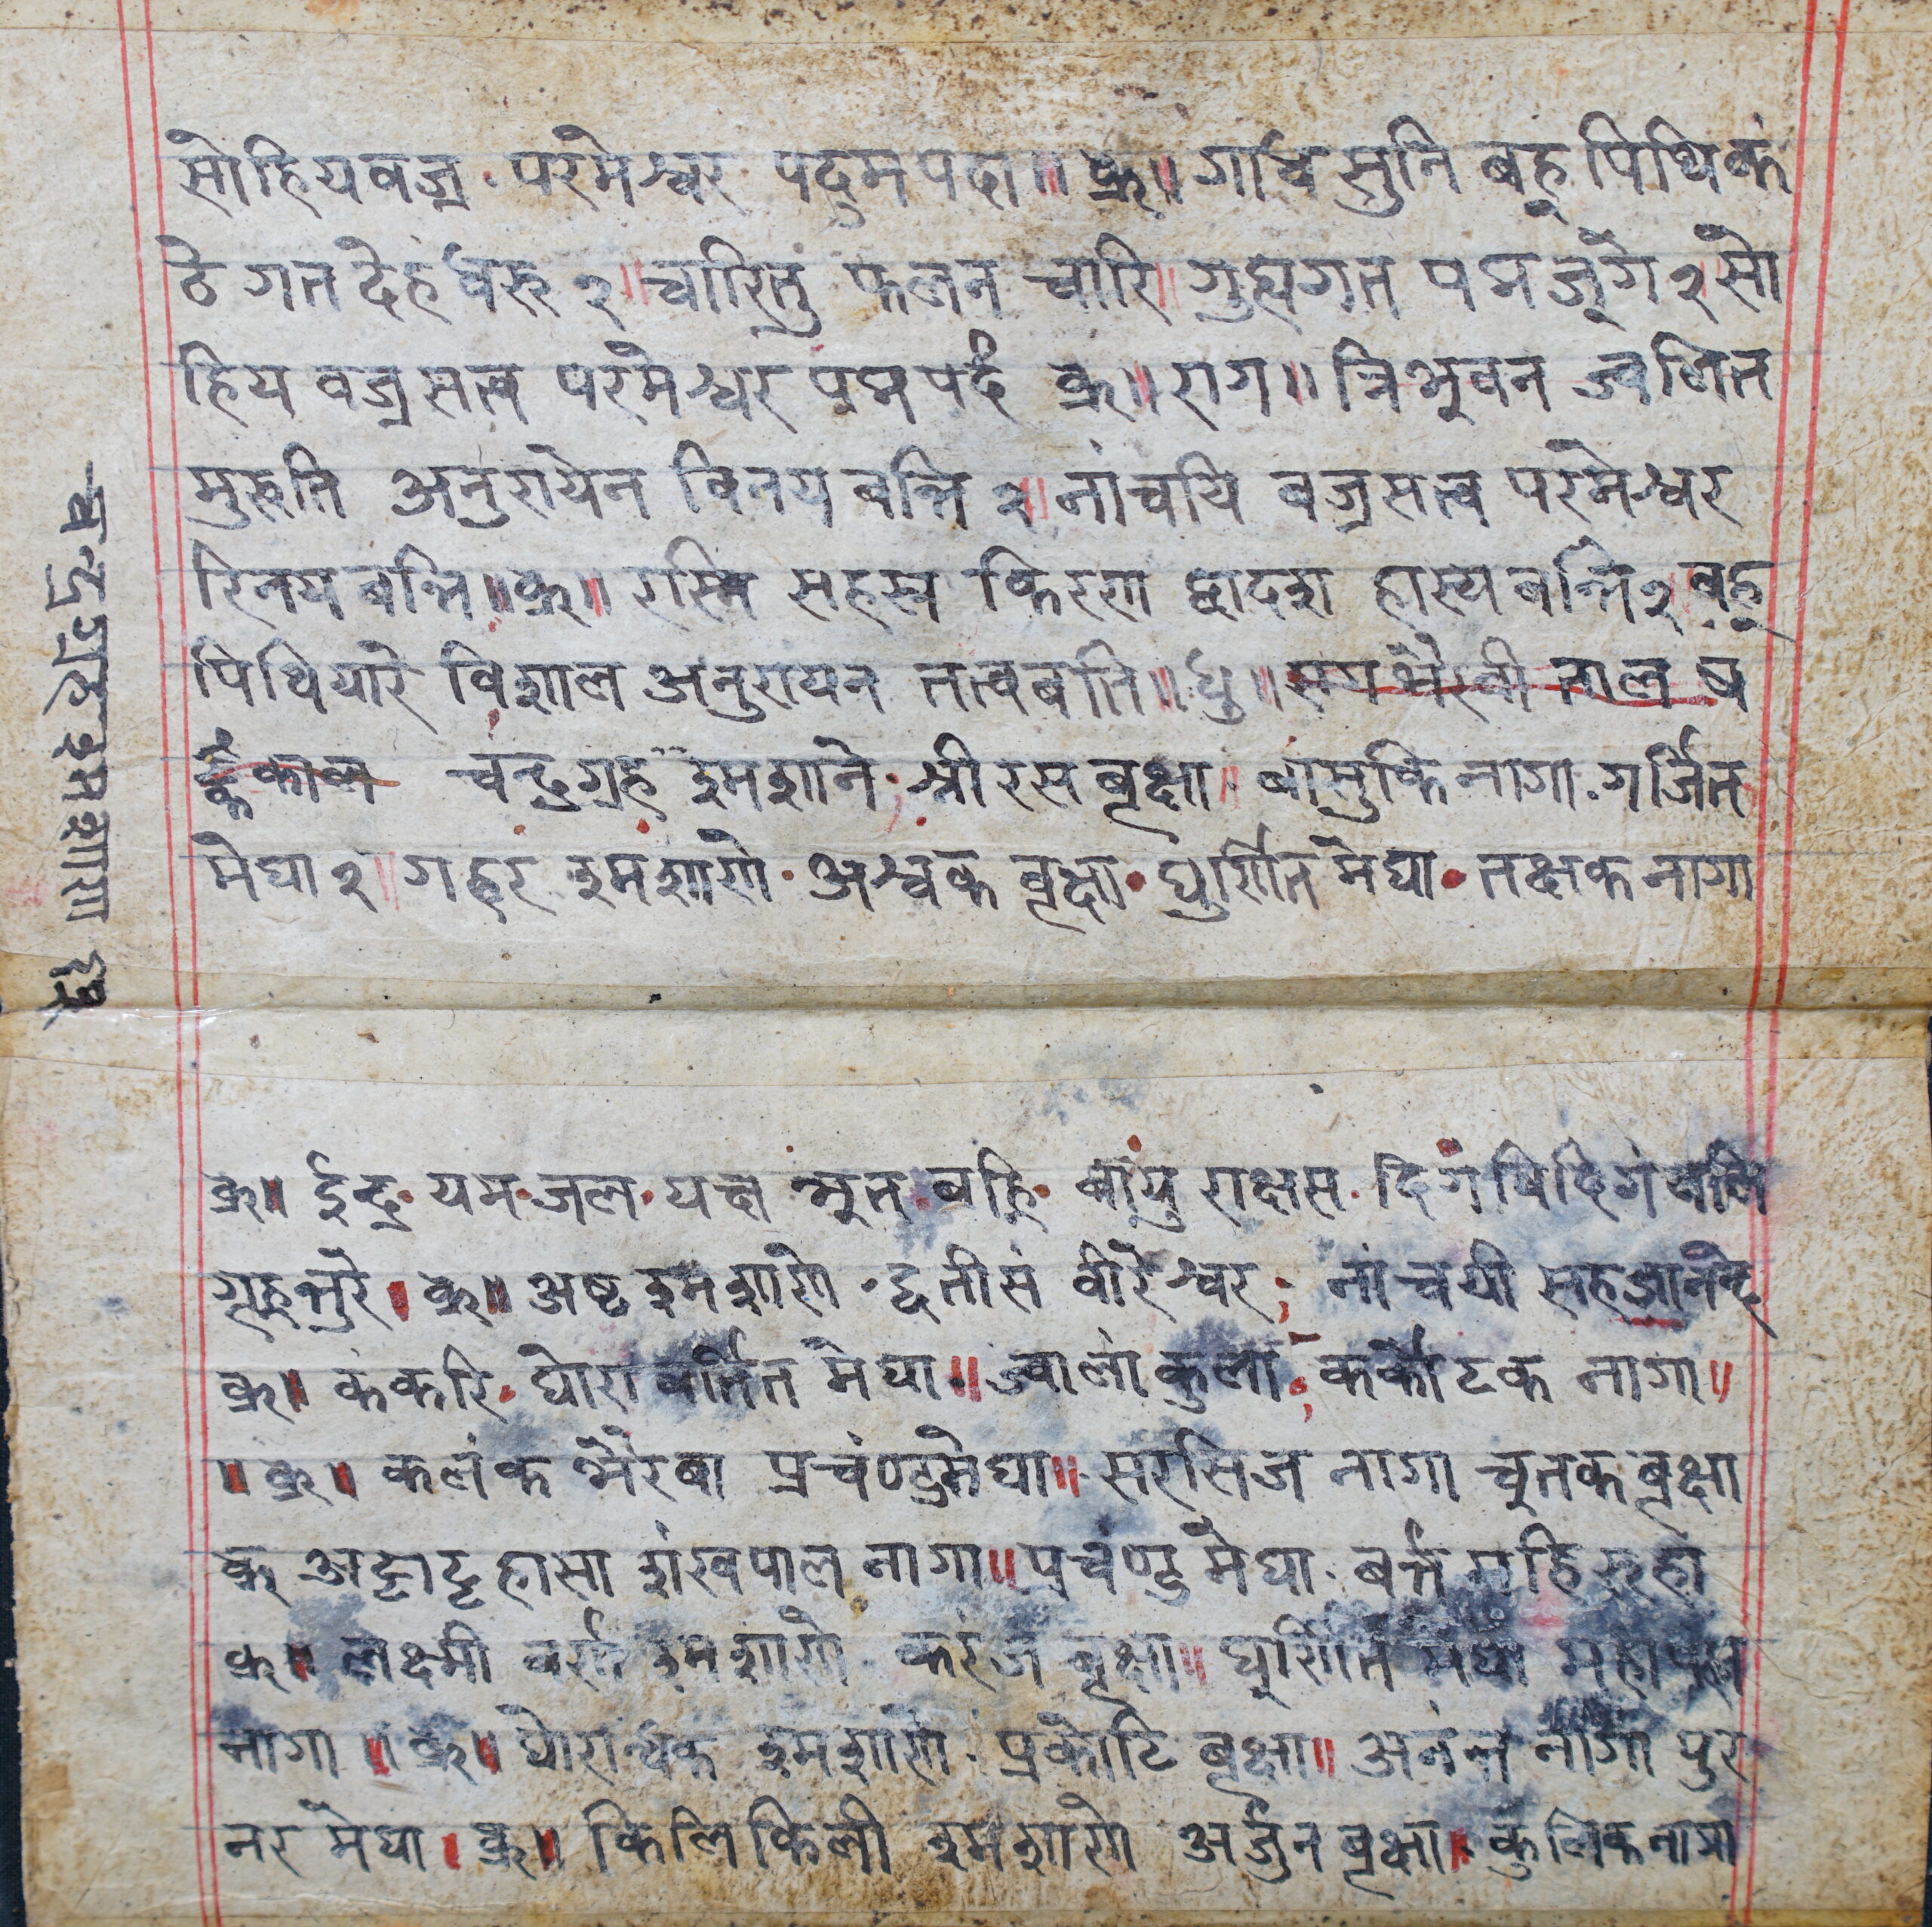 सोहियवज्र परमेश्वर पद्म पदा॥ क्रु॥ गावं सुनि बहु पिथि कं
ठे गत देह धरु २॥ चारितु फलन चारि॥ गुह्यगत पद्म जूंगे २ सो
हिय वज्रसत्व परमेश्वर पद्म पदं क्रु॥ राग॥ त्रिभूवन ज्वलित
मुरुति अनुरायेन विनय वन्ति २॥ नांचयि वज्रसत्व परमेश्वर
रिनय बन्ति॥ क्रु॥ रस्मि सहस्र किरण द्वादश हास्य वन्ति २ बहु
पिथियारे विशाल अनुरायन तत्व बति॥ धु॥ राग भैरवी ताल ष
चन्द्रग्रह श्मशाने श्रीरस बृक्षा॥ वासुकि नागा गर्जित
मेघा २॥ गह्वर श्मशाणे अश्वक बृक्षा घुर्णित मेघा तक्षक नागा
चन्द्रग्रह श्मशाण
क्रु॥ ईन्द्र यम जल यक्ष भूत वह्नि वायु राक्षस दिगं विदिगं वलि
गृह्नतुरे। क्रु॥ अष्ट श्मशाणे द्वतीसं वीरेश्वर नांचयी सहजानन्दे
क्रु॥ कंकरि घोरा वर्तित मेघा॥ ज्वाला कुला कर्कोटक नागा॥
॥क्रु॥ कलंक भैरबा प्रचंण्डमेघा॥ सरसिज नागा चुतक बृक्षा
क्रु अट्टाट्टहासा शंखपाल नागा॥ पचंण्ड मेघा बर्त महिरुहा
क्रु॥ लक्ष्मी वर्तत श्मशाणे करंज बृक्षा॥ घूर्णित मेघा महापद्म
नागा॥ क्रु॥ घोरान्धक श्मशाणे प्रकोटि बृक्षा॥ अनंत नागा पुर
नर मेघा। क्रु॥ किलिकिली श्मशाणे अर्जुन बृक्षा। कुलिक नागा